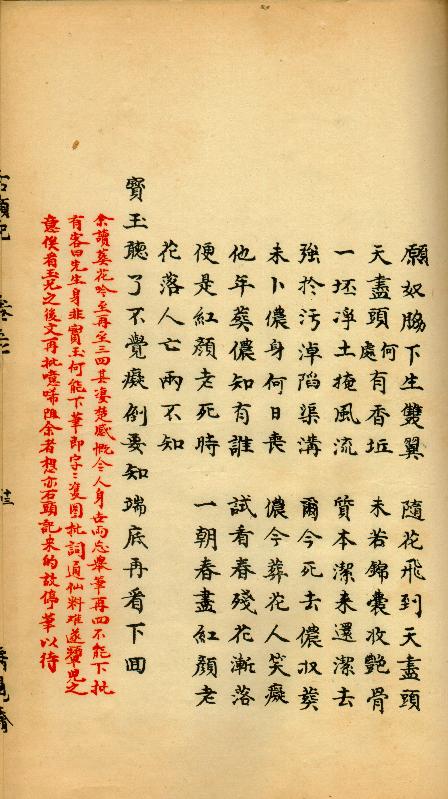 願奴脇下生雙翼　隨花飛到天盡頭
天盡頭何處有香坵　未若錦囊收艷骨
一坯淨土掩風流　質本潔來還潔去
強於污淖陷渠溝　爾今死去儂收葬
未卜儂身何日喪　儂今葬花人笑癡
他年葬儂知有誰　試看春殘花漸落
便是紅顏老死時　一朝春盡紅顏老
花落人亡兩不知
寶玉聽了不覺癡倒要知端底再看下回
余讀葬花吟至再至三四其凄楚感慨令人身世兩忘舉筆再四不能下批
有客曰先生身非寶玉何能下筆即字〻雙圈批詞通仙料難遂顰兒之
意俟看玉兄之後文再批噫唏阻余者想亦石頭記來的故停筆以待